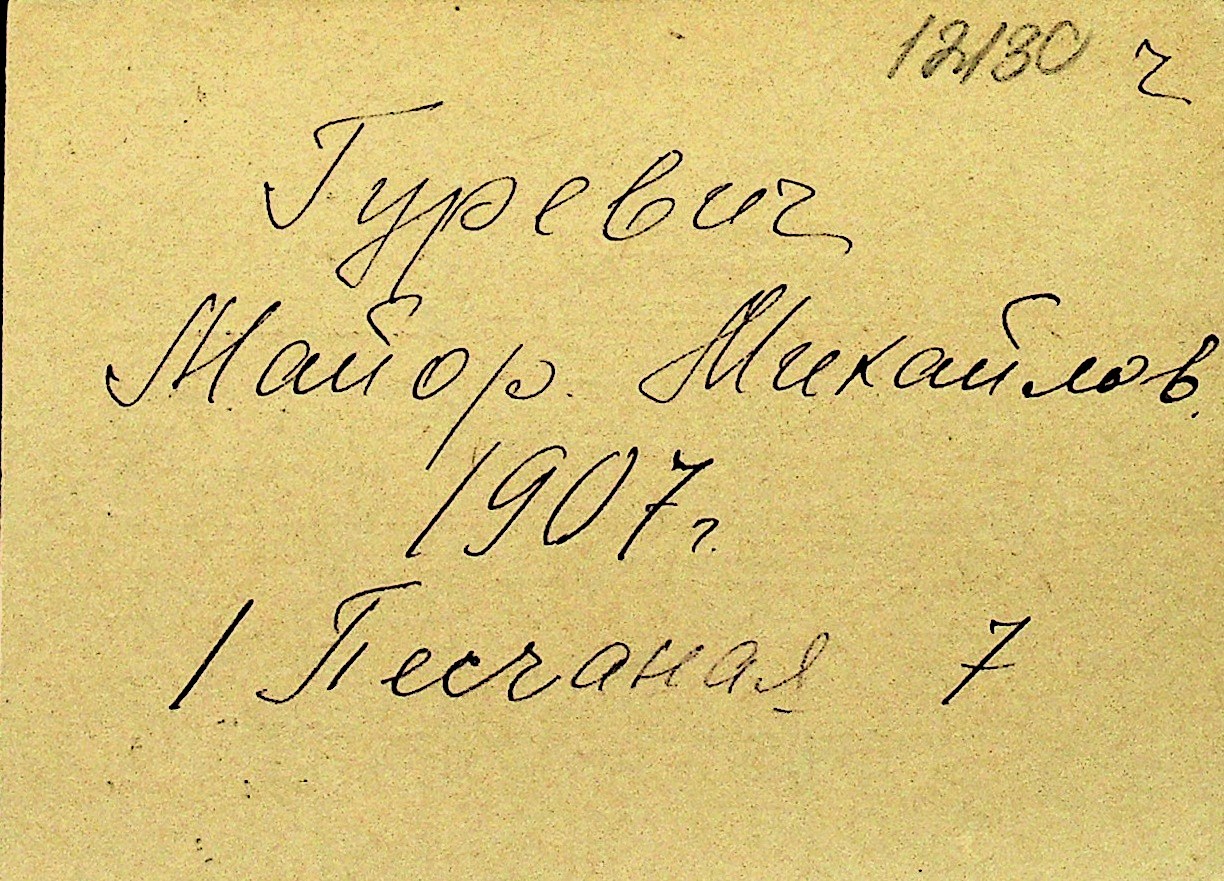 12130 ч
Гуревич
Майор. Михайлов.
1907 г.
1 Песчаная 7